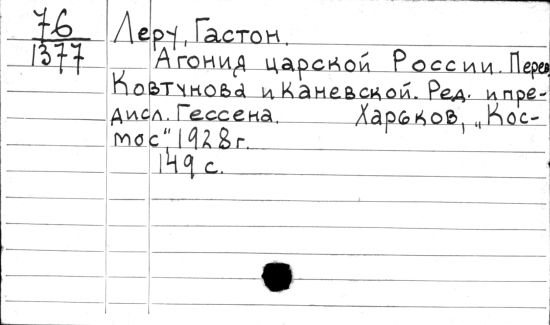 76 Леру, Гастон.
1377 Агония царской России. Перев.
Ковтунова и Каневской. Ред. и пре-
дисл. Гессена. Харьков, „Кос-
мос", 1928 г.
149 с.